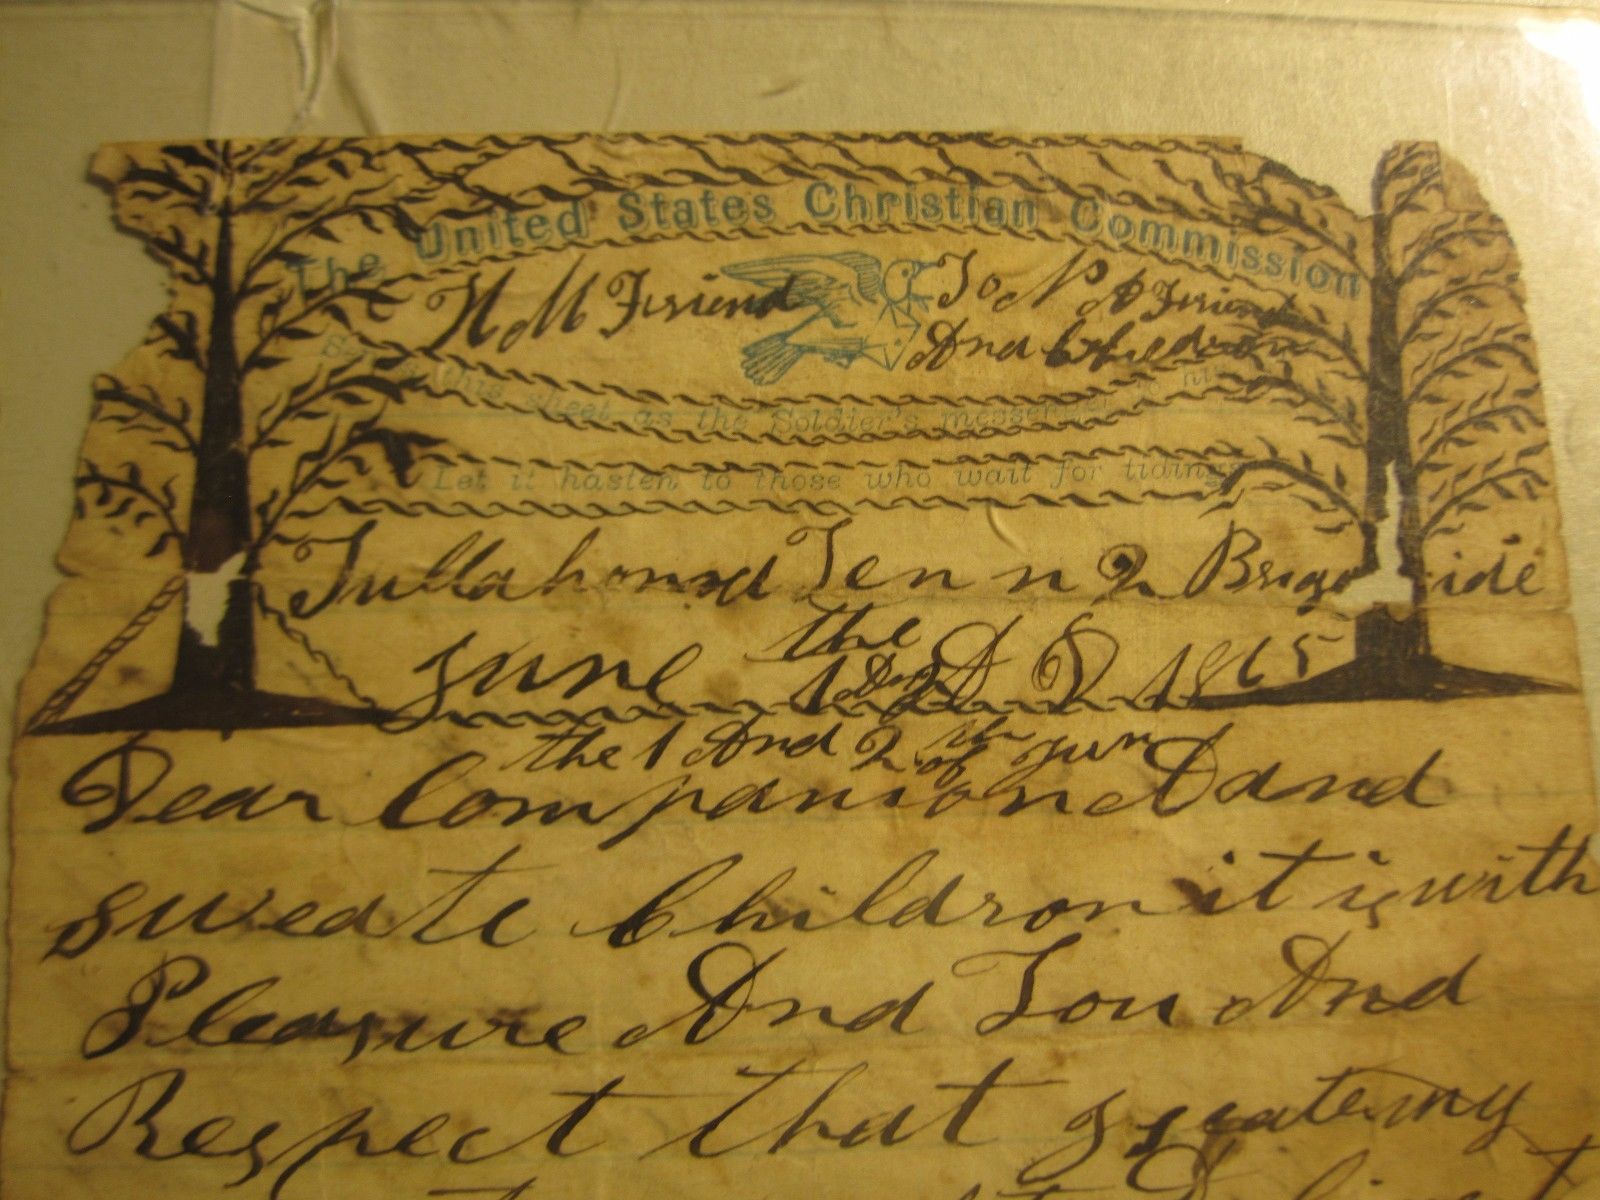 The United States Christian Commission
H M Friend
To N A Friend
And Children
this sheet as the Soldier's messenger to his
Let it hasten to those who wait for tidings
Tullahomad Tenn 2 Brigade
June the 1 A D 1865
the 1 And 2 th of Jun
Dear Companion And
sweate Children it is with
Pleasure And Lov And
Respect that I seate my